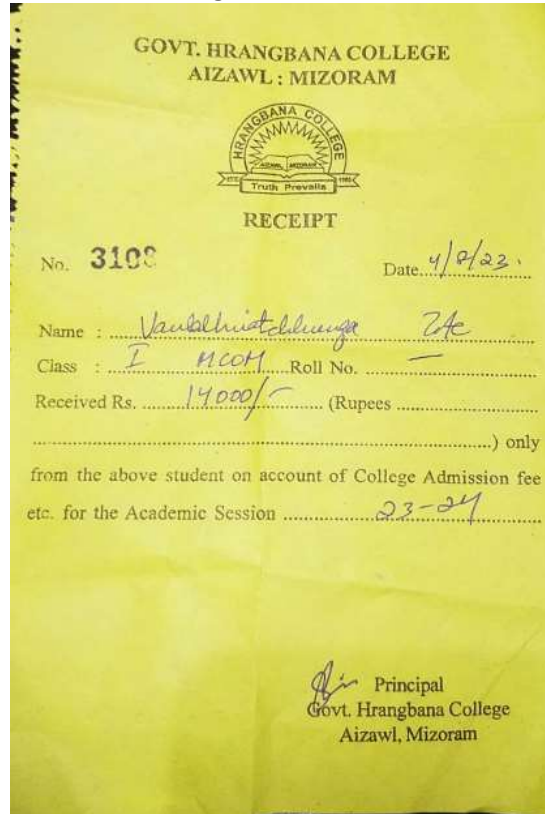 GOVT. HRANGBANA COLLEGE
AIZAWL : MIZORAM
HRANGBANA COLLEGE
AIZAWL, MIZORAM
Truth Prevails
RECEIPT
No. 3108
Date 4/8/23.
Name :
Class : I MCOM Roll No. —
Received Rs. 14000/- (Rupees
) only
from the above student on account of College Admission fee
etc. for the Academic Session 23-24
Principal
Govt. Hrangbana College
Aizawl, Mizoram